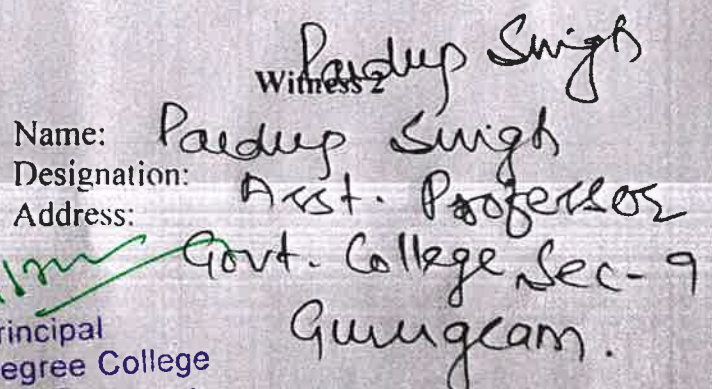 Pardup Singh
Witness 2
Name: Pardup Singh
Designation: Asst. Professor
Address: Govt. College Sec-9
Gurugram.
Principal
Degree College